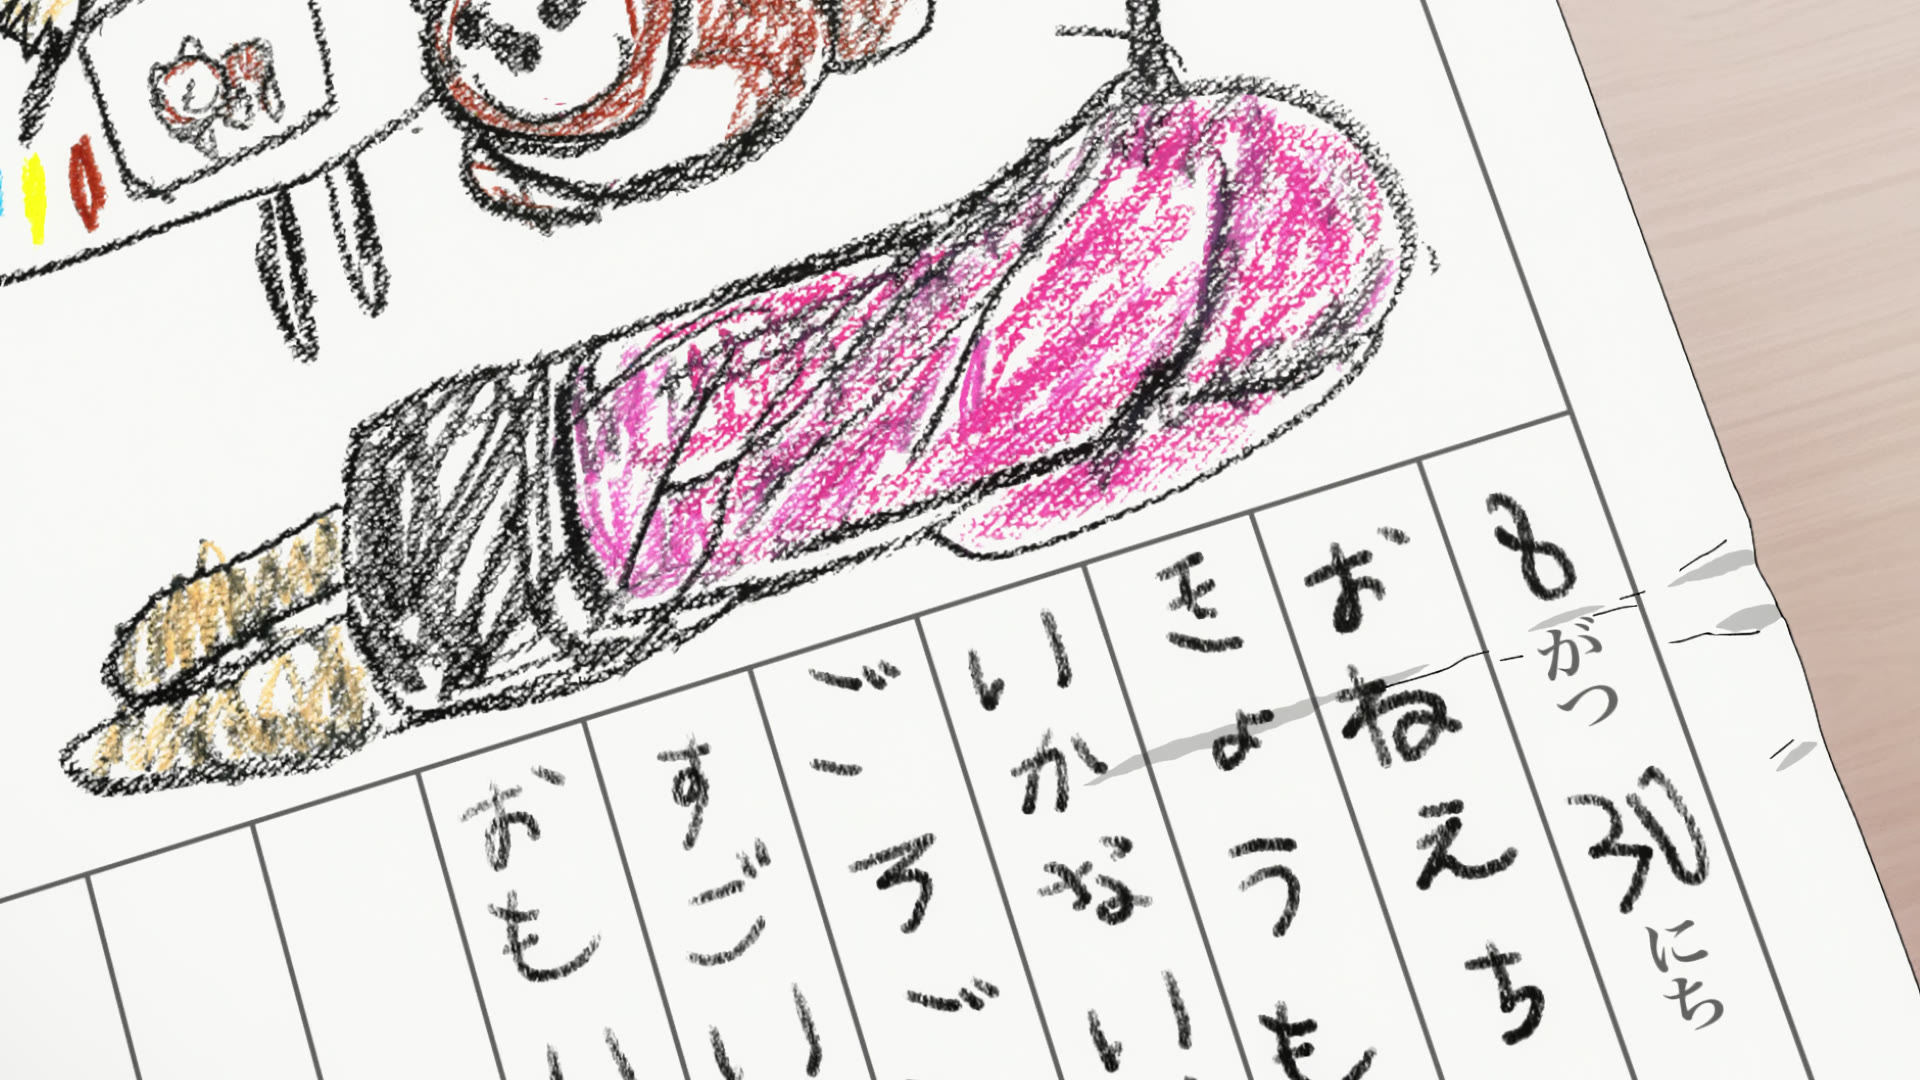 8がつ31にち
おねえち
きょうも
いかない
ごころご
すごい
おもい